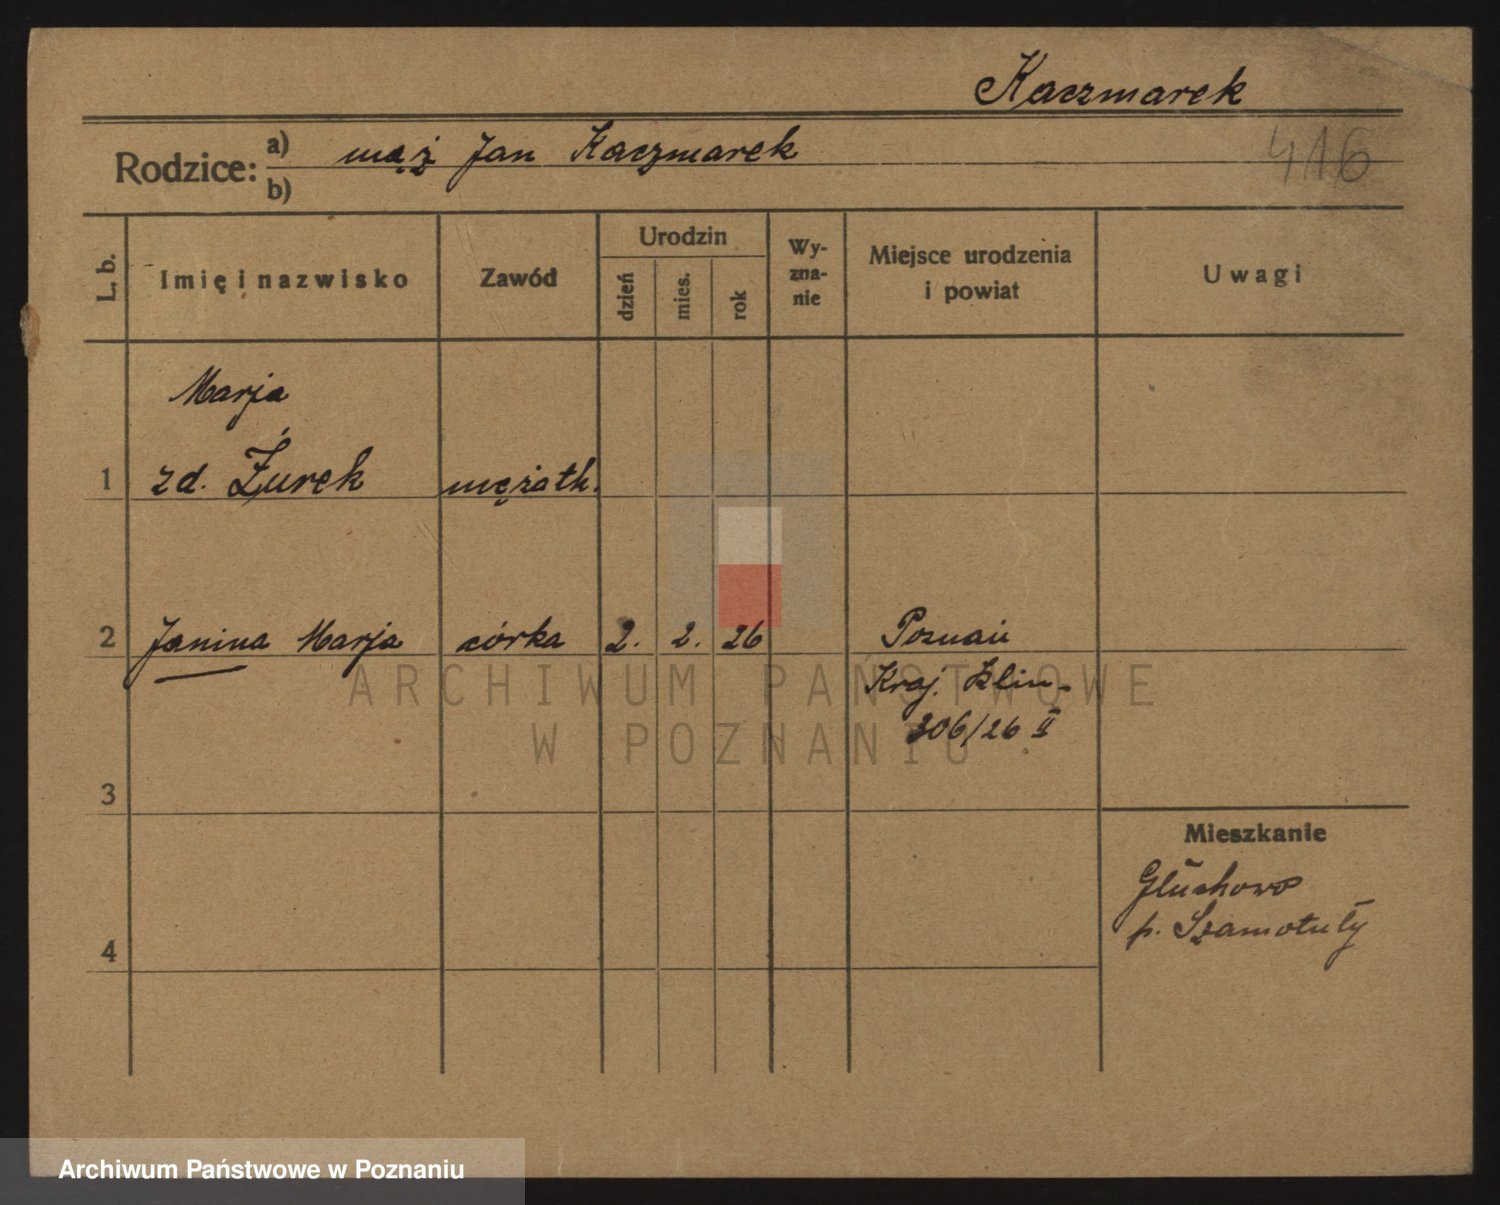 Kaczmarek
416
Rodzice: a) mąż Jan Kaczmarek
b)
L. b.
Imię i nazwisko
Zawód
Urodzin
dzień
mies.
rok
Wy-
zna-
nie
Miejsce urodzenia
i powiat
Uwagi
Marja
1 zd. Żurek mężatk.
2 Janina Marja córka 2. 2. 26 Poznań
Kraj. klin.
306/26 II
3
Mieszkanie
Głuchowo
p. Szamotuły
4
ARCHIWUM PAŃSTWOWE
W POZNANIU
Archiwum Państwowe w Poznaniu